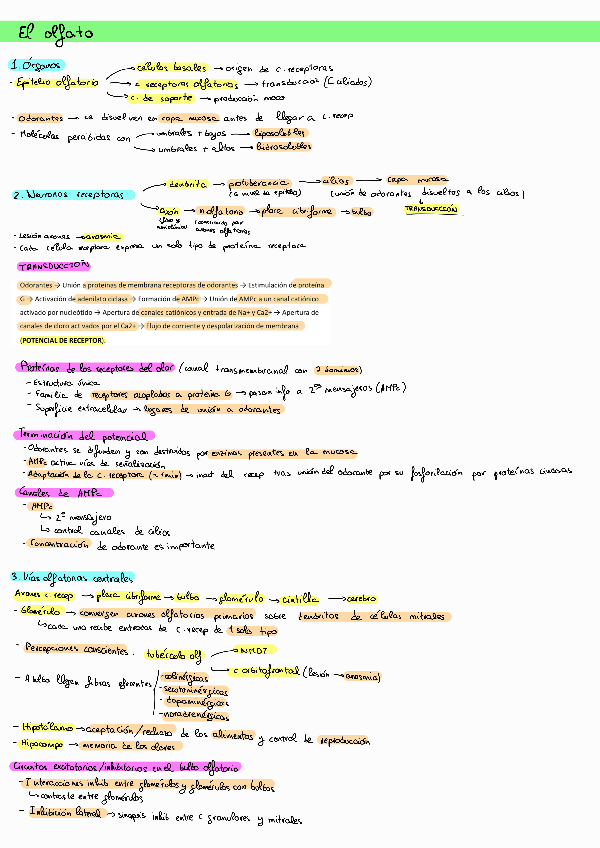 El olfato
1. Órganos
- Epitelio olfatorio → células basales → origen de c. receptoras
→ c receptoras olfatorias → transducción (Ciliados)
→ c. de soporte → producción moco
- Odorantes → se disuelven en capa mucosa antes de llegar a c. recep
- Moléculas percibidas con → umbrales + bajos → liposolubles
→ umbrales + altos → hidrosolubles
2. Neuronas receptoras → dendrita → protuberancia → cilios → capa mucosa
(a nivel de epitelio) (unión de odorantes disueltos a los cilios)
→ axón → n olfatorio → placa cribiforme → bulbo
TRANSDUCCIÓN
(constituido por axones olfatorios)
- Lesión axones → anosmia
- Cada célula receptora expresa un solo tipo de proteína receptora
TRANSDUCCIÓN
Odorantes → Unión a proteínas de membrana receptoras de odorantes → Estimulación de proteína
G → Activación de adenilato ciclasa → Formación de AMPc → Unión de AMPc a un canal catiónico
activado por nucleótido → Apertura de canales catiónicos y entrada de Na+ y Ca2+ → Apertura de
canales de cloro activados por el Ca2+ → Flujo de corriente y despolarización de membrana
(POTENCIAL DE RECEPTOR).
Proteínas de los receptores del olor (canal transmembranal con 7 dominios)
- Estructura única
- Familia de receptores acoplados a proteína G → pasan info a 2º mensajeros (AMPc)
- Superficie extracelular → lugares de unión a odorantes
Terminación del potencial
- Odorantes se difunden y son destruidos por enzimas presentes en la mucosa
- AMPc activa vías de señalización
- Adaptación de la c. receptora (≈ 1min) → inact del recep tras unión del odorante por su fosforilación por proteínas cinasas
Canales de AMPc
- AMPc
↳ 2º mensajero
↳ control canales de cilios
- Concentración de odorante es importante
3. Vías olfatorias centrales
Axones c. recep → placa cribiforme → bulbo → glomérulo → cintilla → cerebro
- Glomérulo → convergen axones olfatorios primarios sobre dendritas de células mitrales
↳ cada uno recibe entradas de c. recep de 1 solo tipo
- Percepciones conscientes. tubérculo olf → NMDT
→ c orbitofrontal (lesión → anosmia)
- A bulbo llegan fibras eferentes - colinérgicas
- serotoninérgicas
- dopaminérgicas
- noradrenérgicas
- Hipotálamo → aceptación/rechazo de los alimentos y control de reproducción
- Hipocampo → memoria de los olores
Circuitos excitatorios/inhibitorios en el bulbo olfatorio
- Interacciones inhib entre glomérulos y glomérulos con bulbos
↳ contraste entre glomérulos
- Inhibición lateral → sinapsis inhib entre c granulares y mitrales